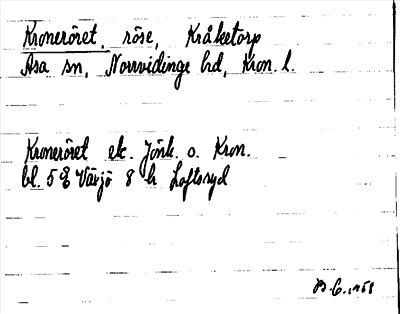 Kroneröret, röse, Kråketorp
Asa sn, Norrvidinge hd, Kron. l.
Kroneröret ek. Jönk. o. Kron.
bl. 5 Ö Växjö 8 h Loftsryd
B.G. 1958